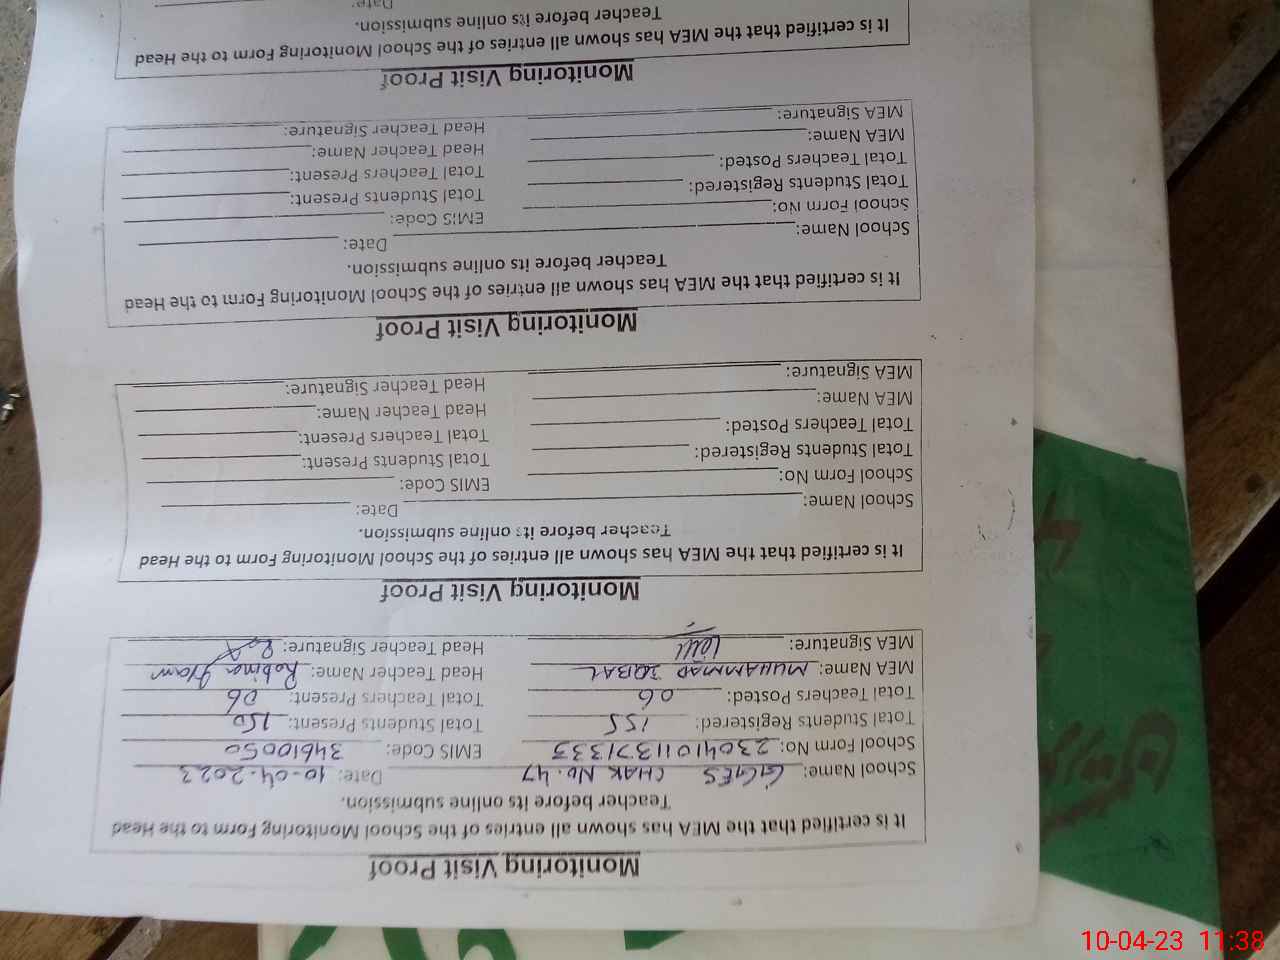 Monitoring Visit Proof
It is certified that the MEA has shown all entries of the School Monitoring Form to the Head
Teacher before its online submission.
School Name: GGES CHAK No. 47 Date: 10-04-2023
School Form No: 23041011371333 EMIS Code: 34610050
Total Students Registered: 155 Total Students Present: 150
Total Teachers Posted: 06 Total Teachers Present: 06
MEA Name: MUHAMMAD IQBAL Head Teacher Name: Robina
MEA Signature: Head Teacher Signature:
Monitoring Visit Proof
It is certified that the MEA has shown all entries of the School Monitoring Form to the Head
Teacher before its online submission.
School Name: Date:
School Form No: EMIS Code:
Total Students Registered: Total Students Present:
Total Teachers Posted: Total Teachers Present:
MEA Name: Head Teacher Name:
MEA Signature: Head Teacher Signature:
Monitoring Visit Proof
It is certified that the MEA has shown all entries of the School Monitoring Form to the Head
Teacher before its online submission.
School Name: Date:
School Form No: EMIS Code:
Total Students Registered: Total Students Present:
Total Teachers Posted: Total Teachers Present:
MEA Name: Head Teacher Name:
MEA Signature: Head Teacher Signature:
Monitoring Visit Proof
It is certified that the MEA has shown all entries of the School Monitoring Form to the Head
Teacher before its online submission.
Date:
10-04-23 11:38